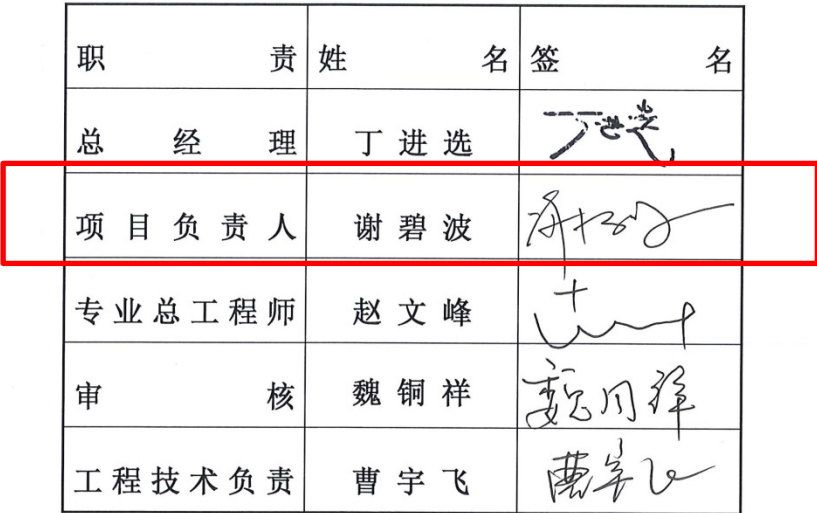 职责 姓名 签名
总经理 丁进选 丁进选
项目负责人 谢碧波
专业总工程师 赵文峰
审核 魏铜祥
工程技术负责 曹宇飞 曹宇飞